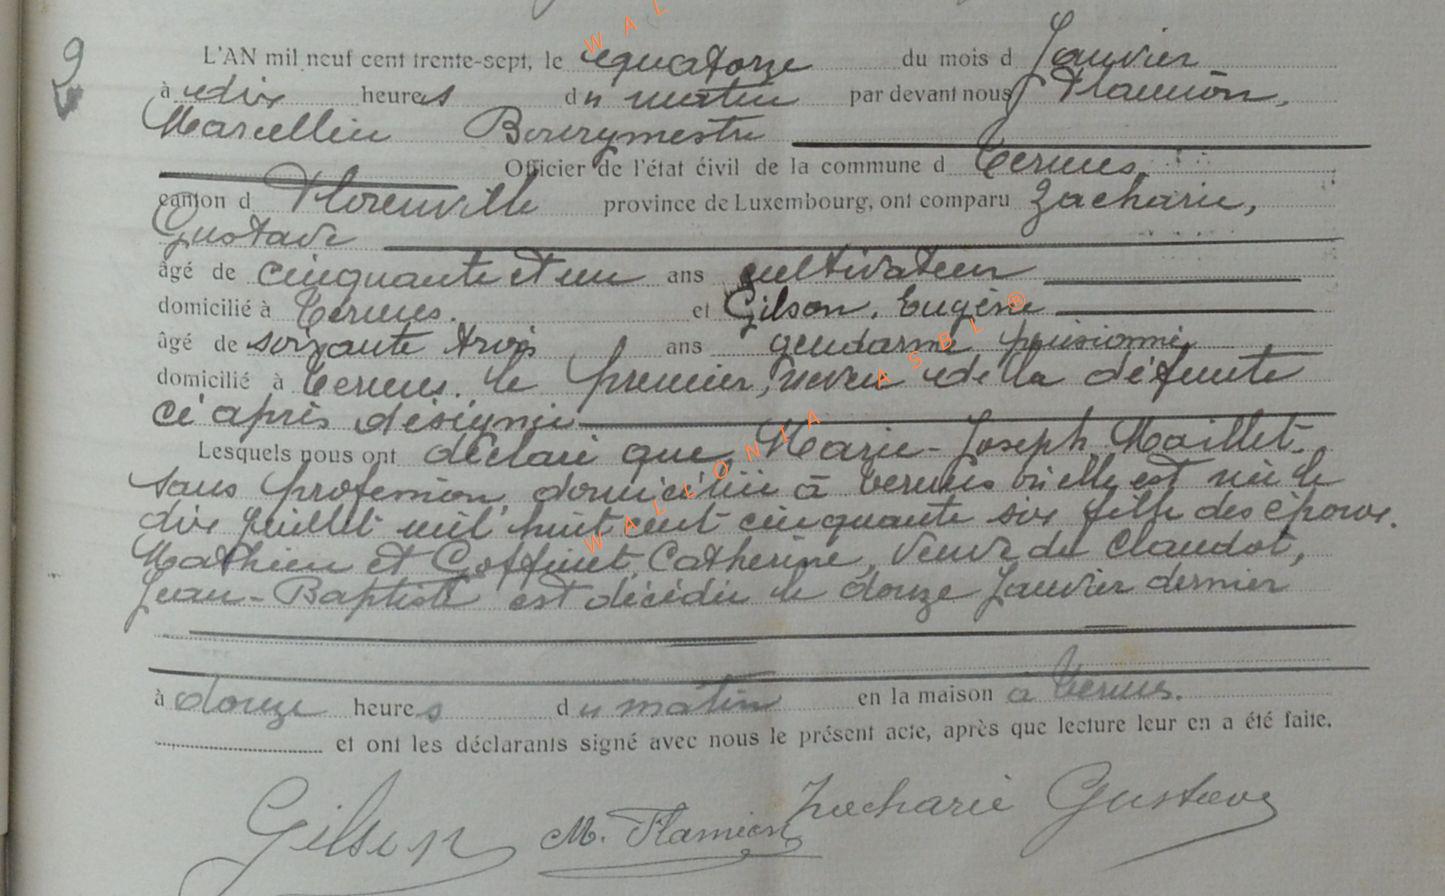 9
L'AN mil neuf cent trente-sept, le quatorze du mois d Janvier
à dix heures du matin par devant nous Flamion,
Marcellin Bourgmestre
Officier de l'état civil de la commune d Termes,
canton d Florenville province de Luxembourg, ont comparu Zacharie,
Gustave
âgé de cinquante et un ans cultivateur
domicilié à Termes. et Gilson, Eugène
âgé de soixante trois ans gendarme pensionné,
domicilié à Termes. le premier, neveu de la défunte
ci après désignée
Lesquels nous ont déclaré que Marie-Joseph Maillet.
sans profession, domiciliée à Termes où elle est née le
dix Juillet mil huit cent cinquante six fille des époux.
Mathieu et Goffinet, Catherine, veuve de Claudot,
Jean-Baptiste est décédée le douze Janvier dernier
à douze heures du matin en la maison à Termes.
et ont les déclarants signé avec nous le présent acte, après que lecture leur en a été faite.
Gilson M. Flamion Zacharie Gustave
WALLONIA ASBL ®
WAL